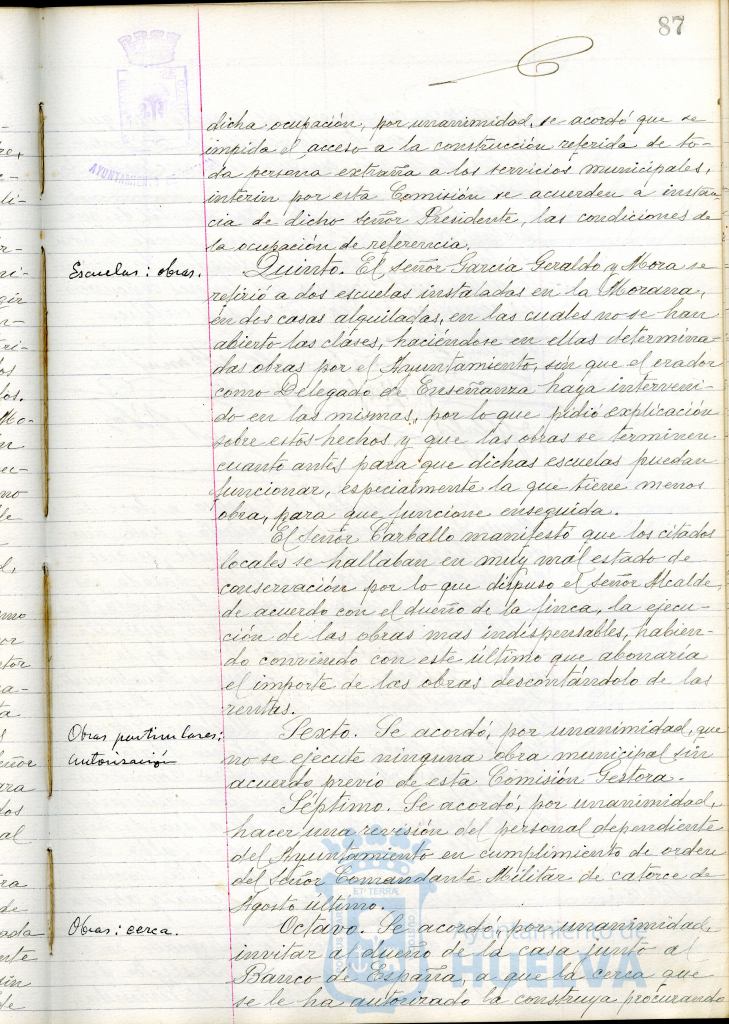 87
AYUNTAMIENTO
dicha ocupación, por unanimidad, se acordó que se
impida el acceso a la construcción referida de to-
da persona extraña a los servicios municipales,
interin por esta Comisión se acuerden a instan-
cia de dicho señor Presidente, las condiciones de
la ocupación de referencia.
Escuelas: obras.
Quinto. El señor García Geraldo y Mora se
refirió a dos escuelas instaladas en la Morana,
en dos casas alquiladas, en las cuales no se han
abierto las clases, haciéndose en ellas determina-
das obras por el Ayuntamiento, sin que el orador
como Delegado de Enseñanza haya interveni-
do en las mismas, por lo que pidió explicación
sobre estos hechos y que las obras se terminen
cuanto antes para que dichas escuelas puedan
funcionar, especialmente la que tiene menos
obra, para que funcione enseguida.
El Señor Carballo manifestó que los citados
locales se hallaban en muy mal estado de
conservación por lo que dispuso el Señor Alcalde,
de acuerdo con el dueño de la finca, la ejecu-
ción de las obras mas indispensables, habien-
do convenido con este último que abonaría
el importe de las obras descontándolo de las
rentas.
Obras particulares:
autorización
Sexto. Se acordó, por unanimidad, que
no se ejecute ninguna obra municipal sin
acuerdo previo de esta Comisión Gestora.
Séptimo. Se acordó, por unanimidad,
hacer una revisión del personal dependiente
del Ayuntamiento en cumplimiento de orden
del Señor Comandante Militar de catorce de
Agosto último.
Obras: cerca.
Octavo. Se acordó, por unanimidad,
invitar al dueño de la casa junto al
Banco de España, a que la cerca que
se le ha autorizado la construya procurando
Ayuntamiento de
HUELVA